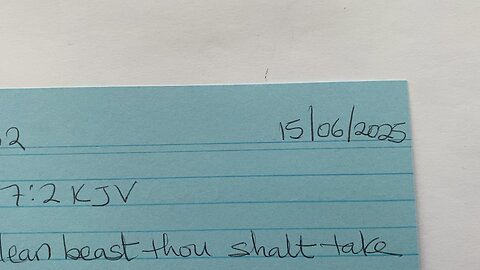 2 15/06/2025
7:2 KJV
lean beast thou shalt take